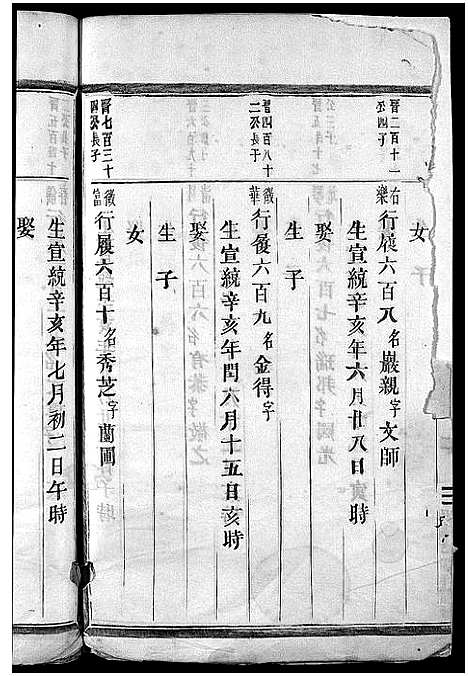 女
晋二百十一
公四子
右樂行履六百八名嚴親字文師
生宣統辛亥年六月廿八日寅時
娶
生子
晋四百八十
二公長子
徵華行履六百九名金得字
生宣統辛亥年閏六月十五日亥時
娶
生子
女
晋七百三十
四公長子
徵富行履六百十名秀芝字蘭圃
生宣統辛亥年七月初二日午時
娶